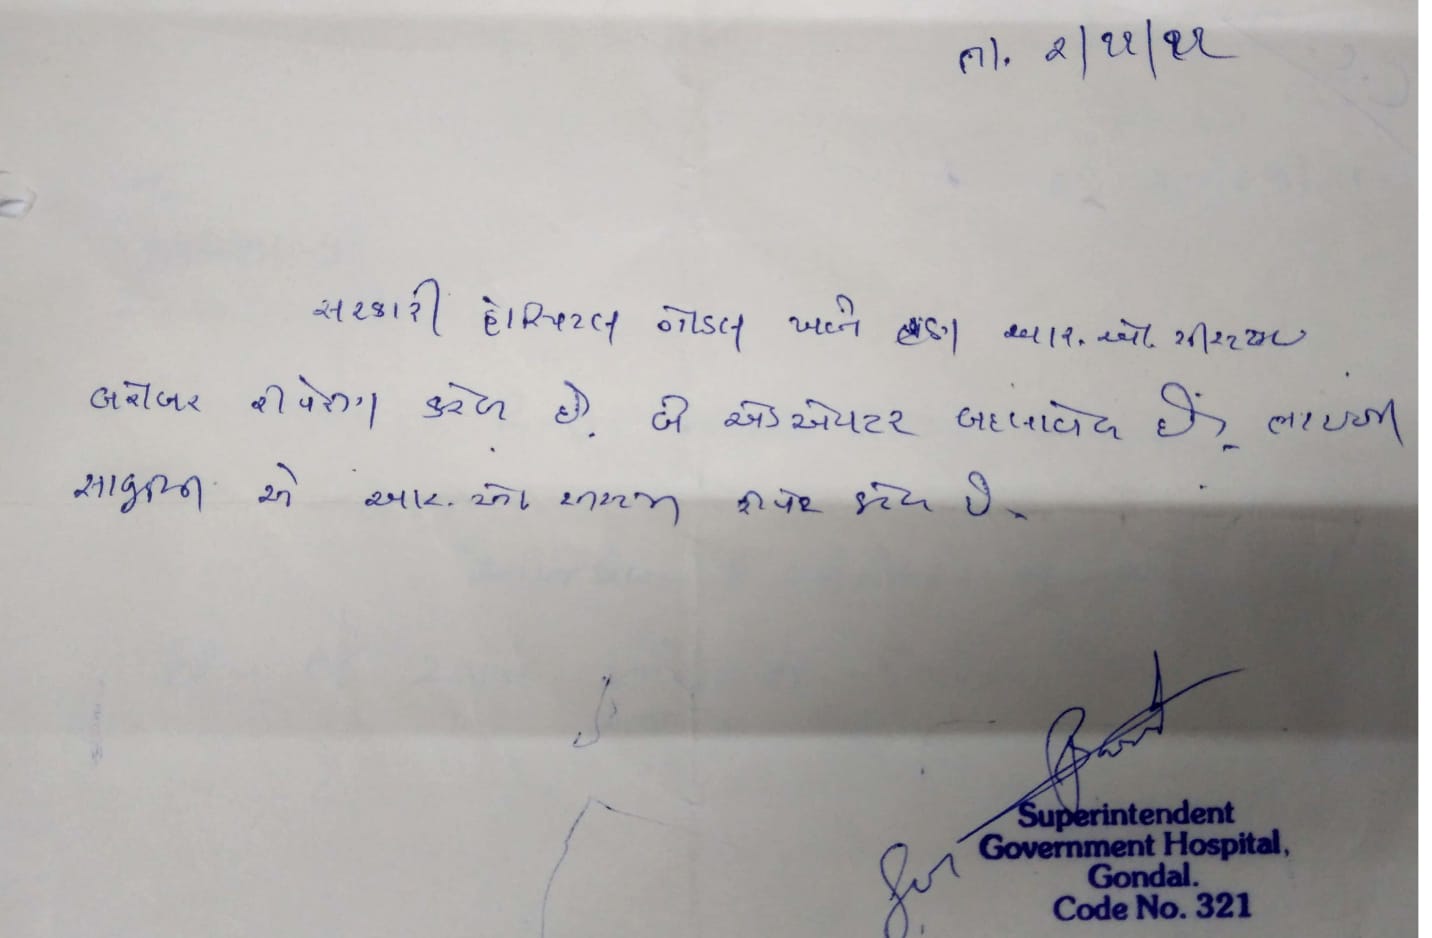 તા. ૨/૧૧/૧૧
સરકારી હોસ્પિટલ ગોંડલ ખાતે આર. ઓ. સીસ્ટમ
બરોબર રીપેરીંગ કરેલ છે. બે એડએપટર બદલાવેલ છે.
એ આર. ઓ સીસ્ટમ રીપેર કરેલ છે.
For
Superintendent
Government Hospital,
Gondal.
Code No. 321